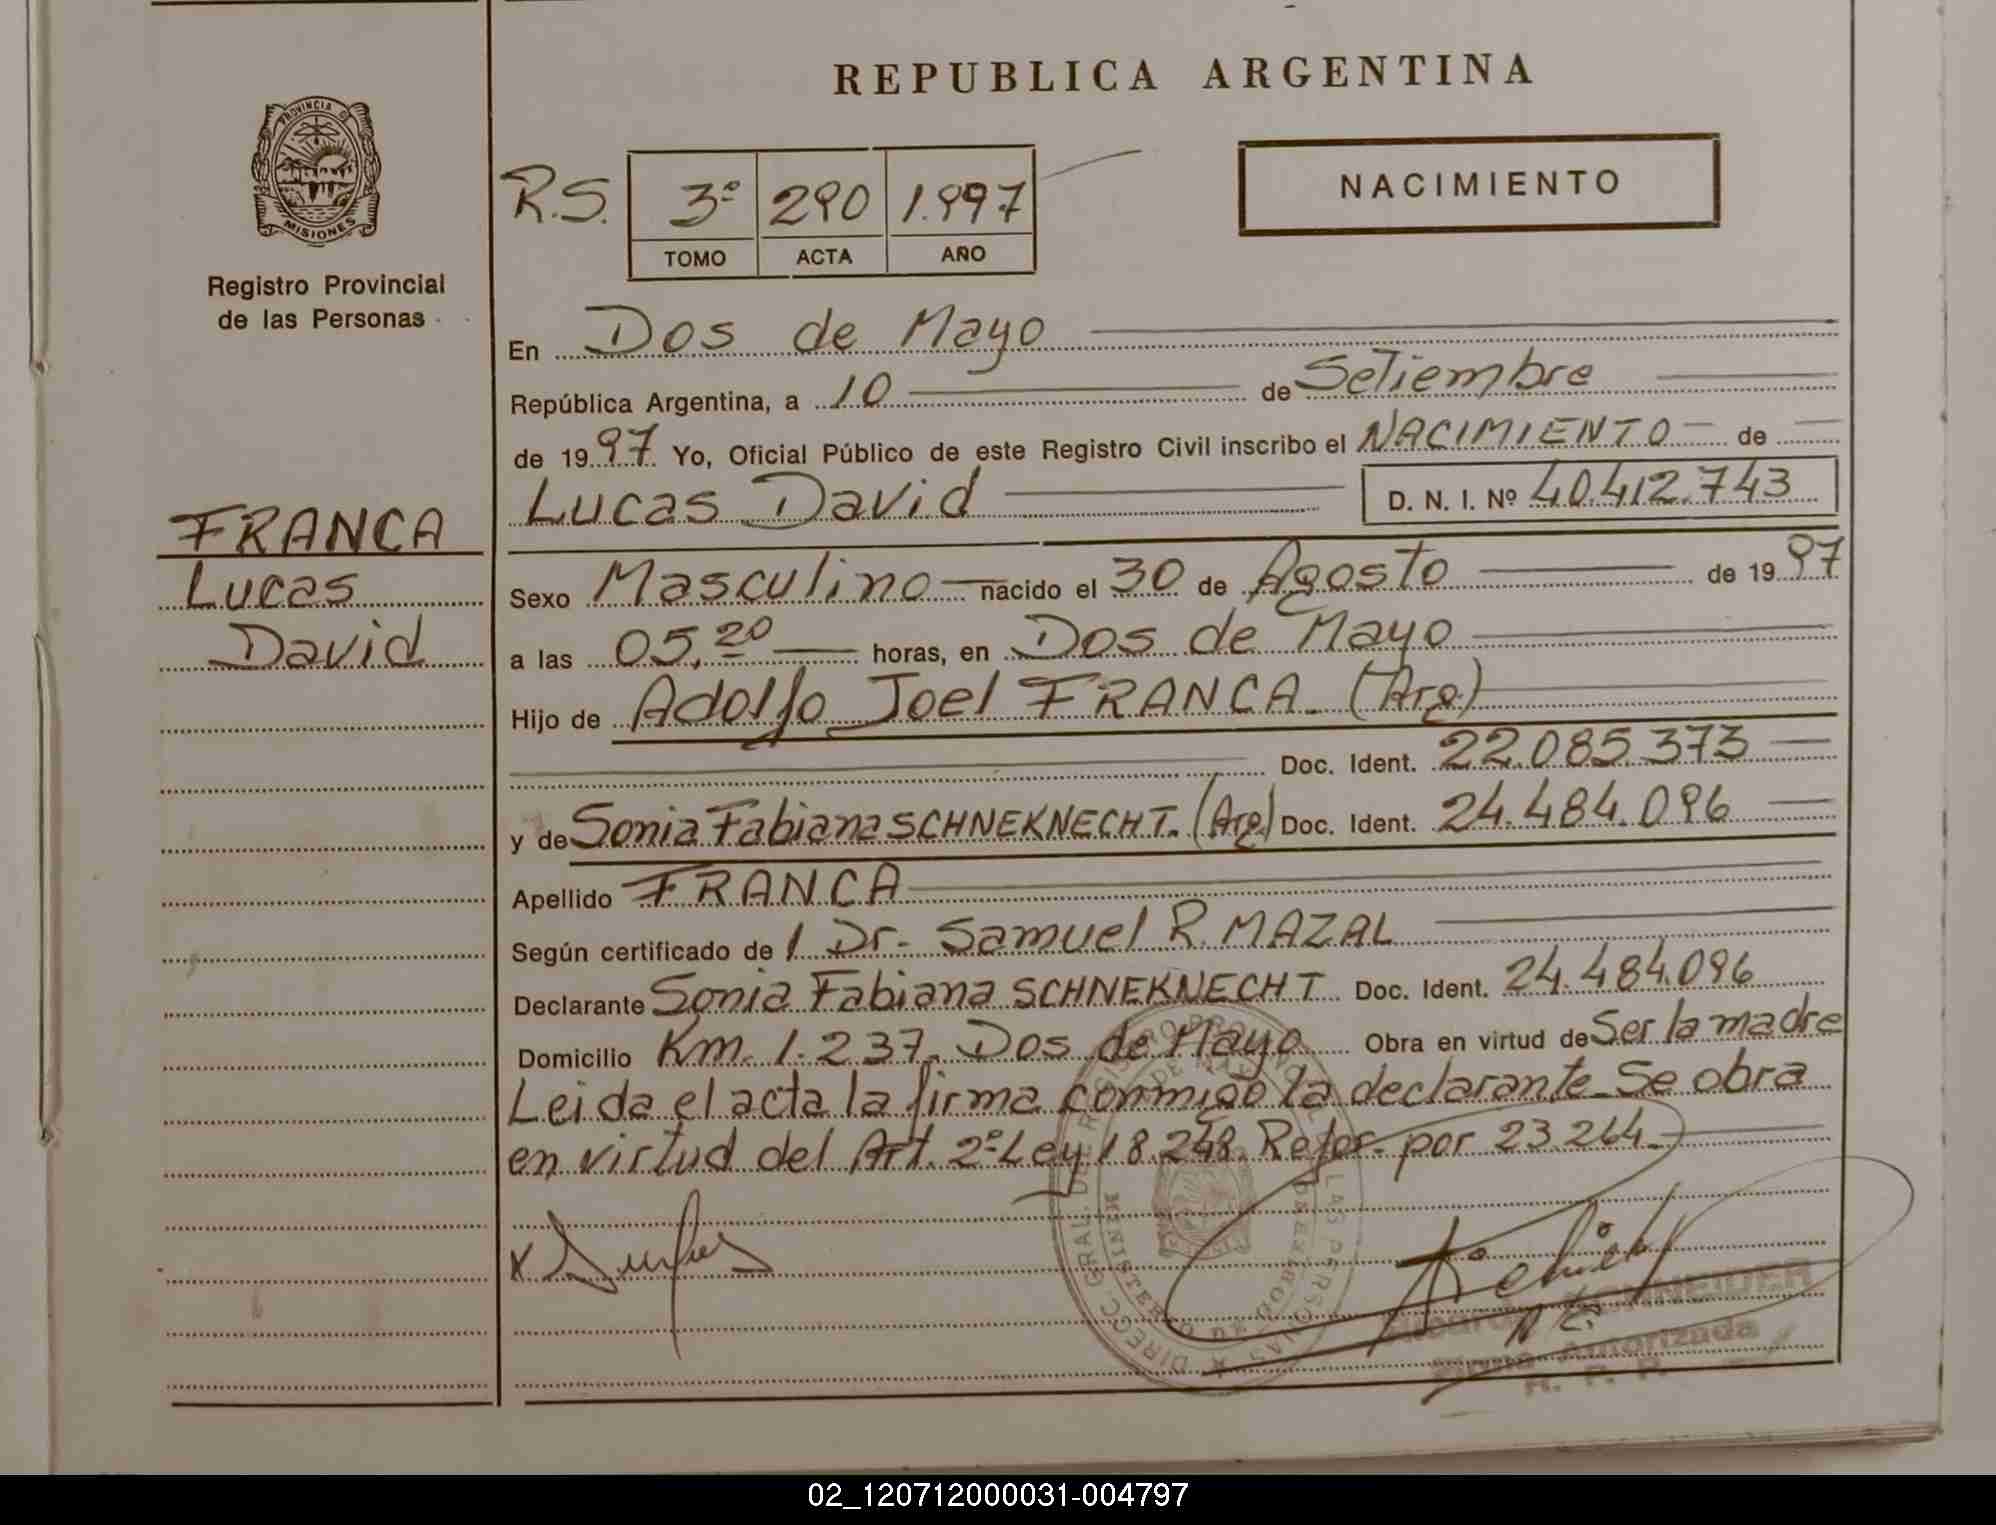 REPUBLICA ARGENTINA
PROVINCIA DE
MISIONES
Registro Provincial
de las Personas
R.S. 3º 290 1.997
TOMO ACTA AÑO
NACIMIENTO
En Dos de Mayo
República Argentina, a 10 de Setiembre
de 1997 Yo, Oficial Público de este Registro Civil inscribo el NACIMIENTO de
Lucas David D. N. I. Nº 40.412.743
FRANCA
Lucas
David
Sexo Masculino nacido el 30 de Agosto de 1997
a las 05,20 horas, en Dos de Mayo
Hijo de Adolfo Joel FRANCA. (Arg.)
Doc. Ident. 22.085.373
y de Sonia Fabiana SCHNEKNECHT. (Arg.) Doc. Ident. 24.484.096
Apellido FRANCA
Según certificado de l Dr. Samuel R. MAZAL
Declarante Sonia Fabiana SCHNEKNECHT Doc. Ident. 24.484.096
Domicilio Km. 1.237. Dos de Mayo Obra en virtud de Ser la madre
Leida el acta la firma conmigo la declarante. Se obra
en virtud del Art. 2º Ley 18.248. Refor. por 23.264.
DIRECC. GRAL. DE REGISTRO PROVINCIAL DE LAS PERSONAS
MINISTERIO DE GOBIERNO
SCHNEIDER
Firma Autorizada
R. P. P.
02_120712000031-004797